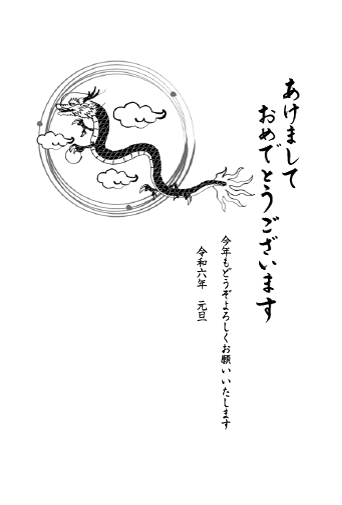 あけまして
おめでとうございます
今年もどうぞよろしくお願いいたします
令和六年　元旦